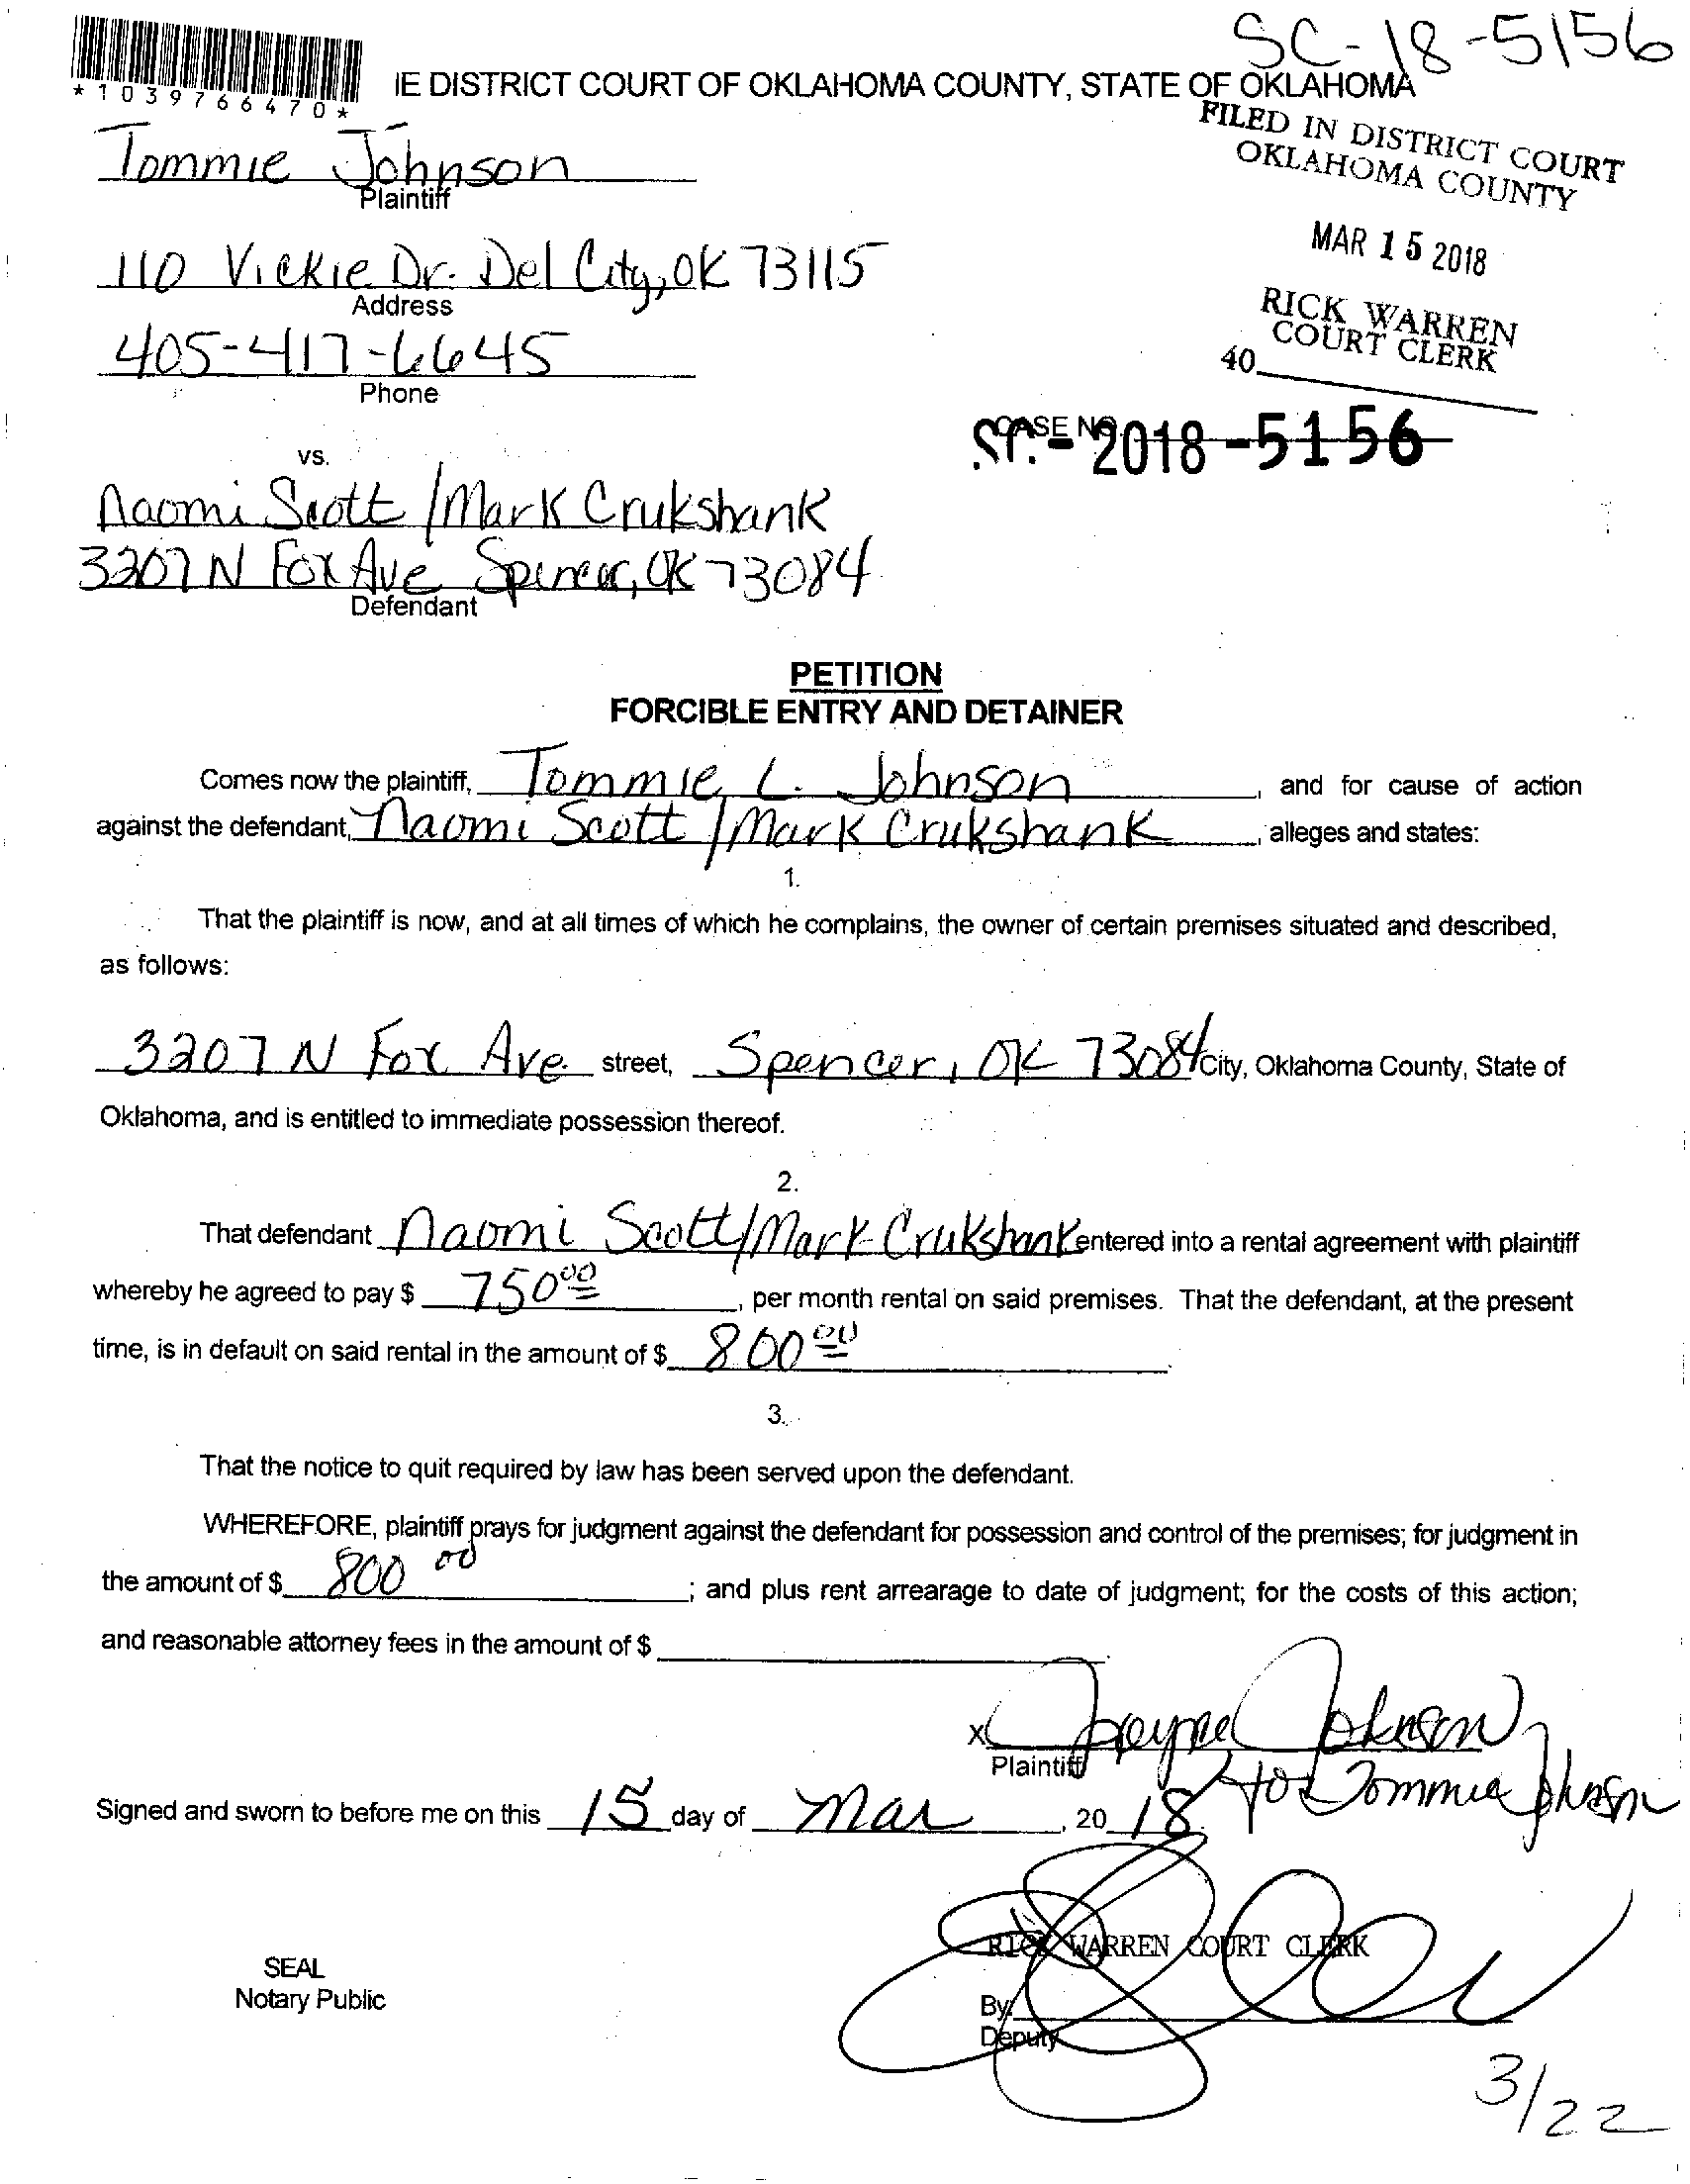 SC-18-5156
*1039766470*
IE DISTRICT COURT OF OKLAHOMA COUNTY, STATE OF OKLAHOMA
FILED IN DISTRICT COURT
OKLAHOMA COUNTY
Tommie Johnson
Plaintiff
MAR 15 2018
110 Vickie Dr. Del City, OK 73115
Address
RICK WARREN
COURT CLERK
40
405-417-6645
Phone
CASE NO.
SC-2018-5156
vs.
Naomi Scott / Mark Crukshank
3207 N Fox Ave Spencer, OK 73084
Defendant
PETITION
FORCIBLE ENTRY AND DETAINER
Comes now the plaintiff, Tommie L. Johnson, and for cause of action
against the defendant, Naomi Scott / Mark Crukshank, alleges and states:
1.
That the plaintiff is now, and at all times of which he complains, the owner of certain premises situated and described,
as follows:
3207 N Fox Ave. street, Spencer, OK 73084 City, Oklahoma County, State of
Oklahoma, and is entitled to immediate possession thereof.
2.
That defendant Naomi Scott/Mark Crukshank entered into a rental agreement with plaintiff
whereby he agreed to pay $ 750 00, per month rental on said premises. That the defendant, at the present
time, is in default on said rental in the amount of $ 800 00.
3.
That the notice to quit required by law has been served upon the defendant.
WHEREFORE, plaintiff prays for judgment against the defendant for possession and control of the premises; for judgment in
the amount of $ 800 00; and plus rent arrearage to date of judgment; for the costs of this action;
and reasonable attorney fees in the amount of $
x Johnson
Plaintiff
for Tommie Johnson
Signed and sworn to before me on this 15 day of Mar, 20 18.
RICK WARREN COURT CLERK
SEAL
Notary Public
By:
Deputy
3/22